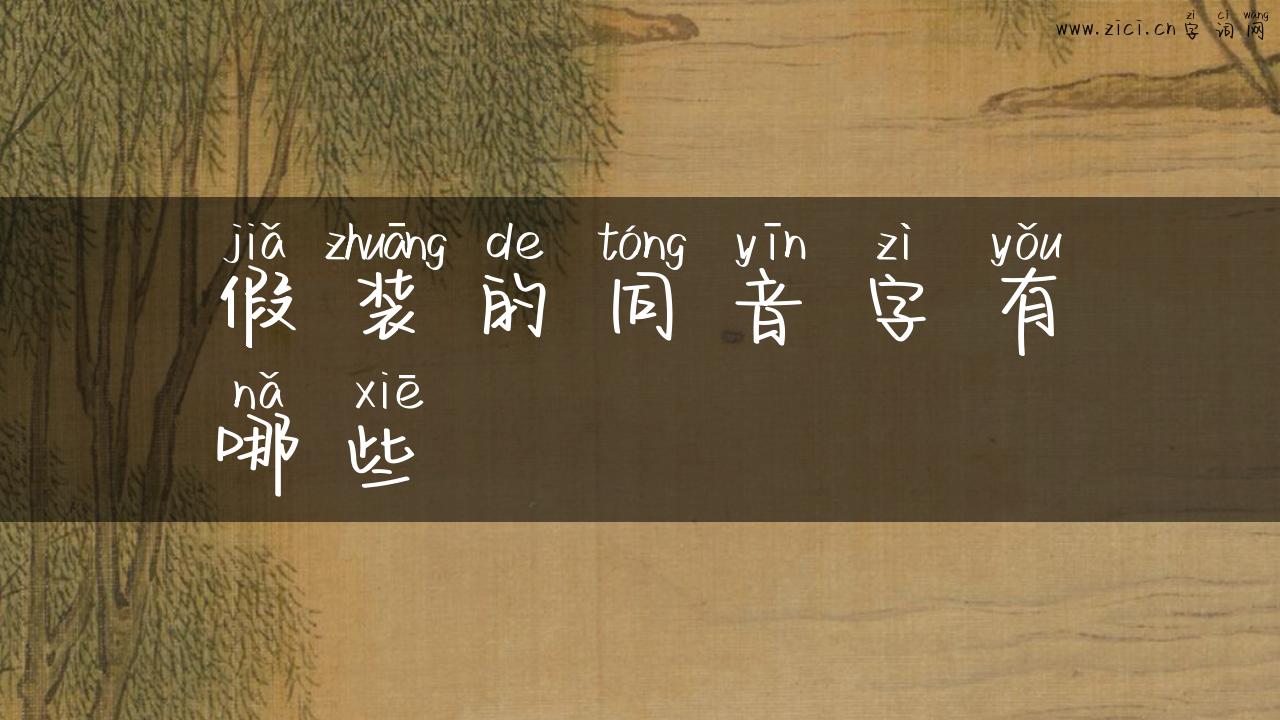 zì cí wǎng
www.zici.cn 字词网
jiǎ zhuāng de tóng yīn zì yǒu
假装的同音字有
nǎ xiē
哪些